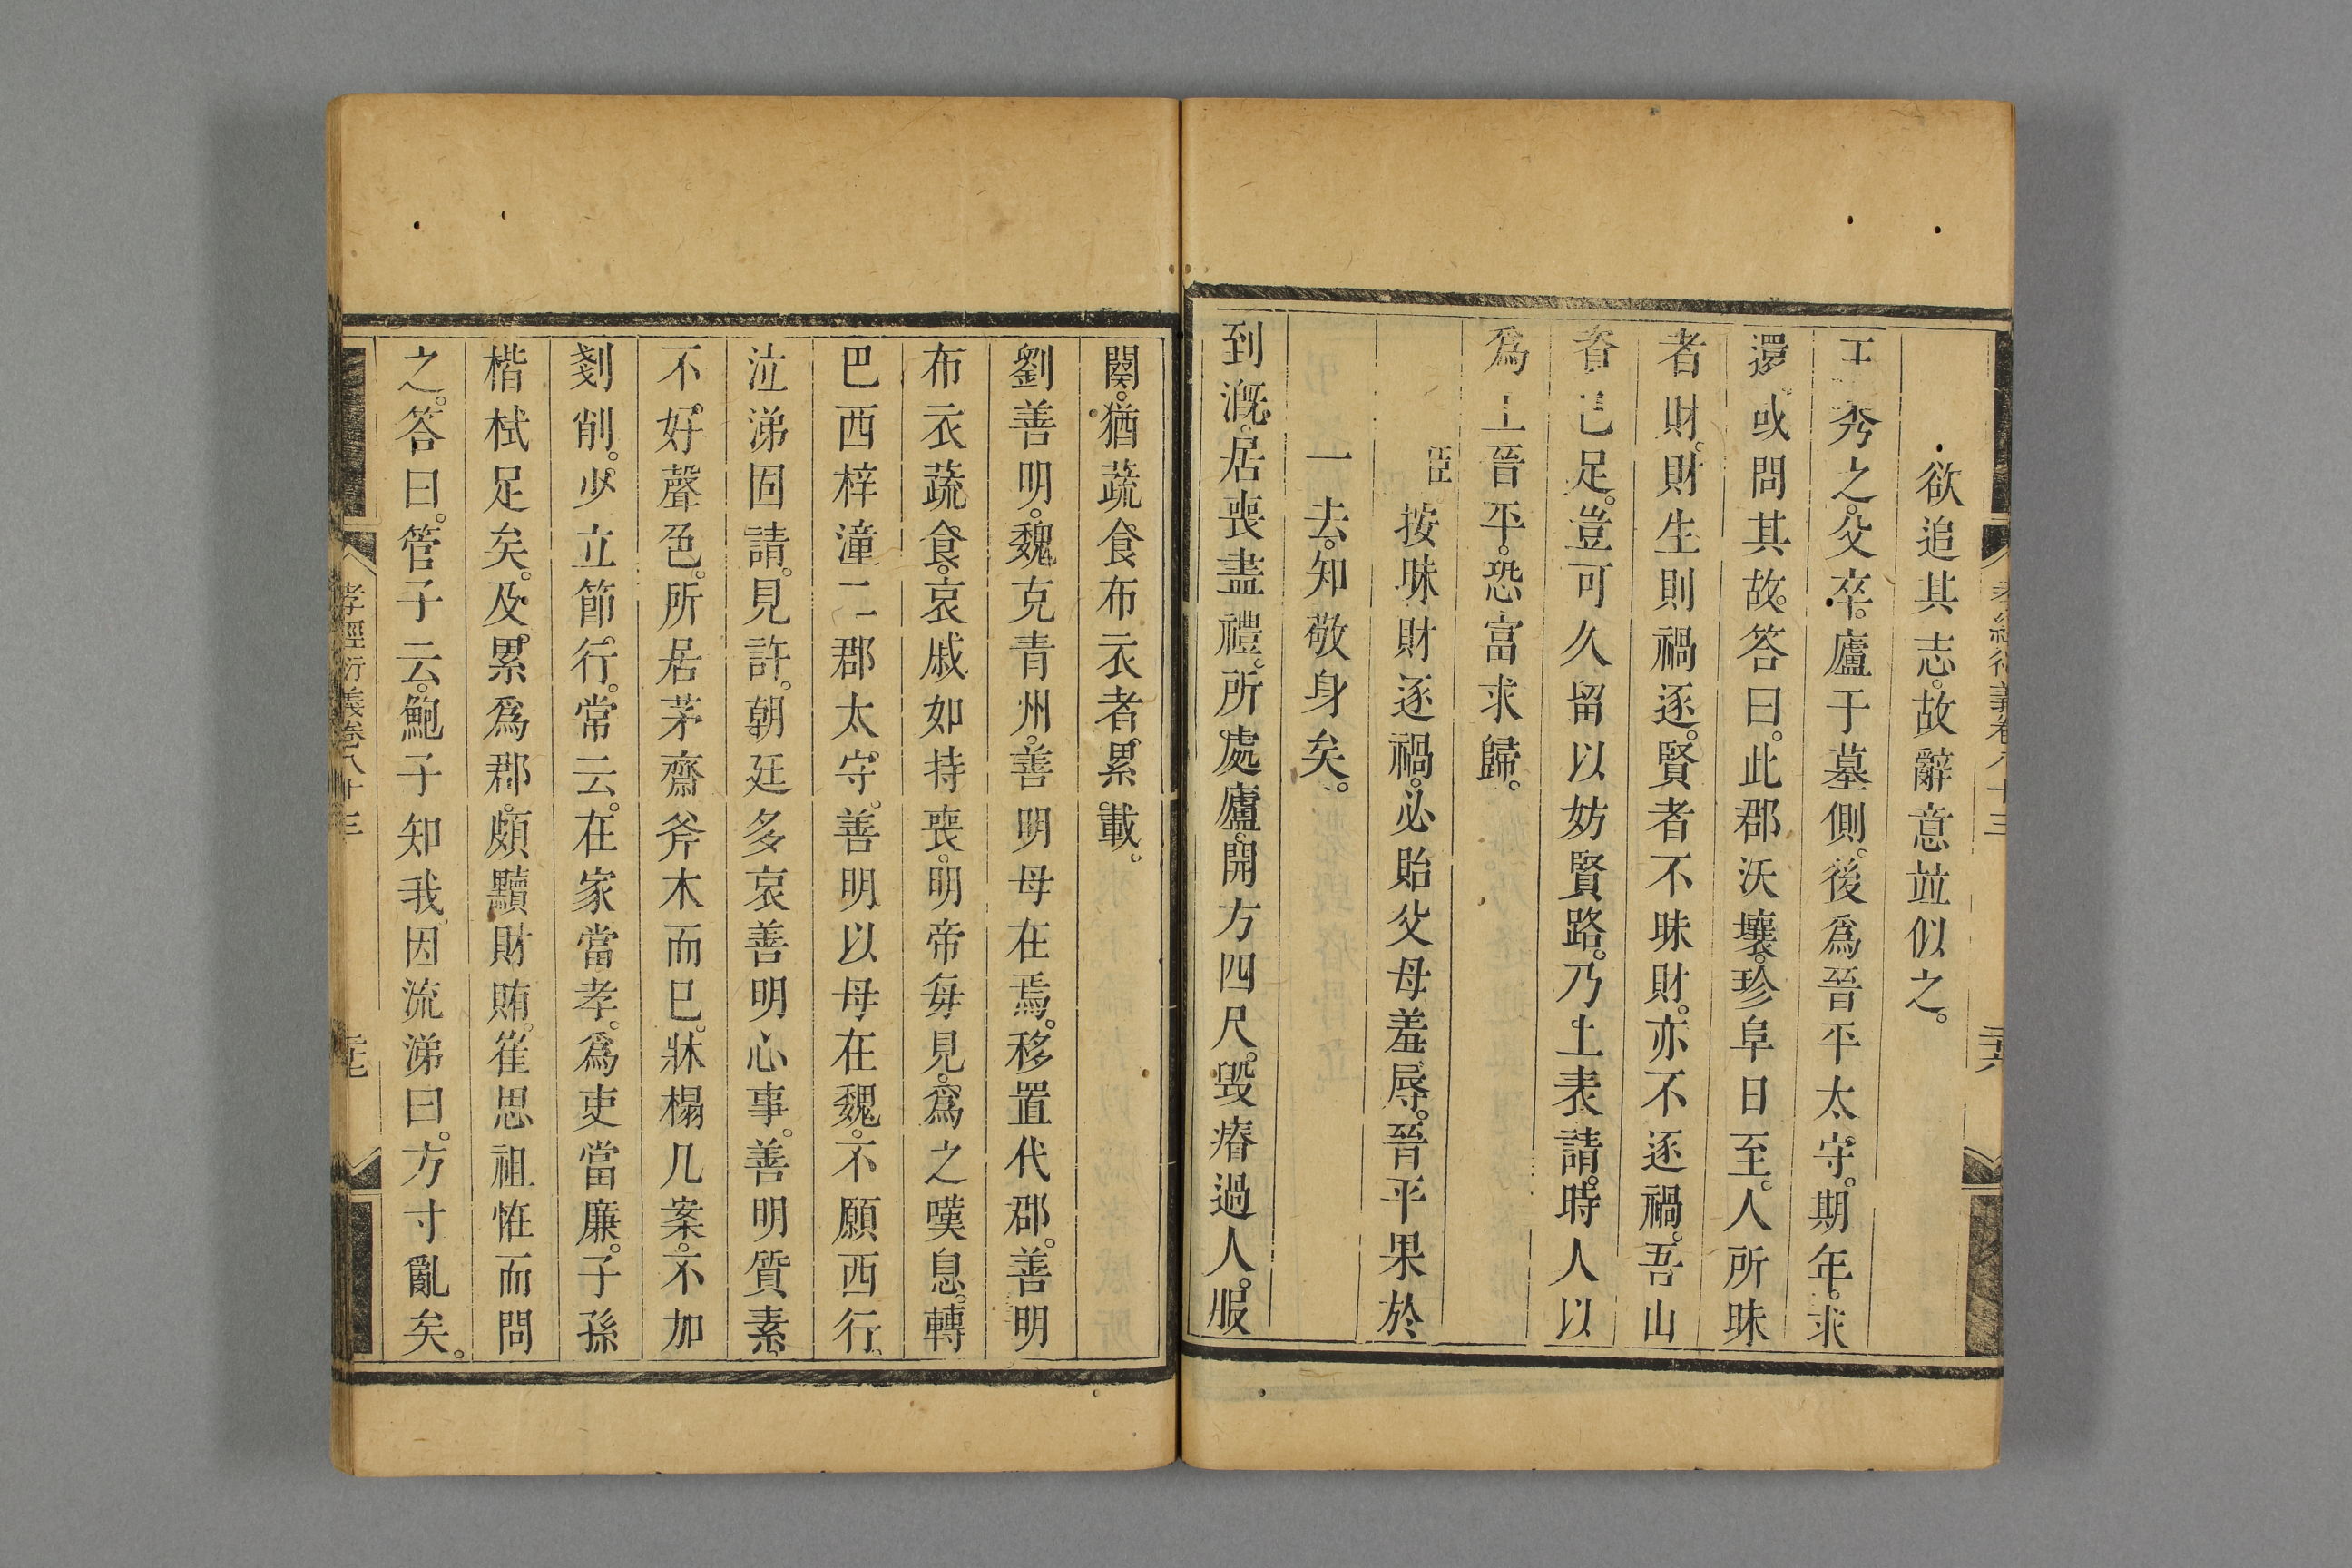 欲追其志。故辭意竝似之。
王秀之。父卒。廬于墓側。後爲晉平太守。期年。求
還。或問其故。答曰。此郡沃壤。珍阜日至。人所昧
者財。財生則禍逐。賢者不昧財。亦不逐禍。吾山
資已足。豈可久留以妨賢路。乃上表請。時人以
爲上晉平。恐富求歸。
臣按昧財逐禍。必貽父母羞辱。晉平果於
一去。知敬身矣。
到溉。居喪盡禮。所處廬。開方四尺。毀瘠過人。服
闋。猶蔬食布衣者。累載。
劉善明。魏克青州。善明母在焉。移置代郡。善明
布衣蔬食。哀戚如持喪。明帝每見。爲之嘆息。轉
巴西梓潼二郡太守。善明以母在魏。不願西行。
泣涕固請。見許。朝廷多哀善明心事。善明質素。
不好聲色。所居茅齋斧木而已。牀榻几案。不加
剗削。少立節行。常云。在家當孝。爲吏當廉。子孫
楷栻足矣。及累爲郡。頗黷財賄。崔思祖恠而問
之。答曰。管子云。鮑子知我。因流涕曰。方寸亂矣。
孝經衍義卷八十三